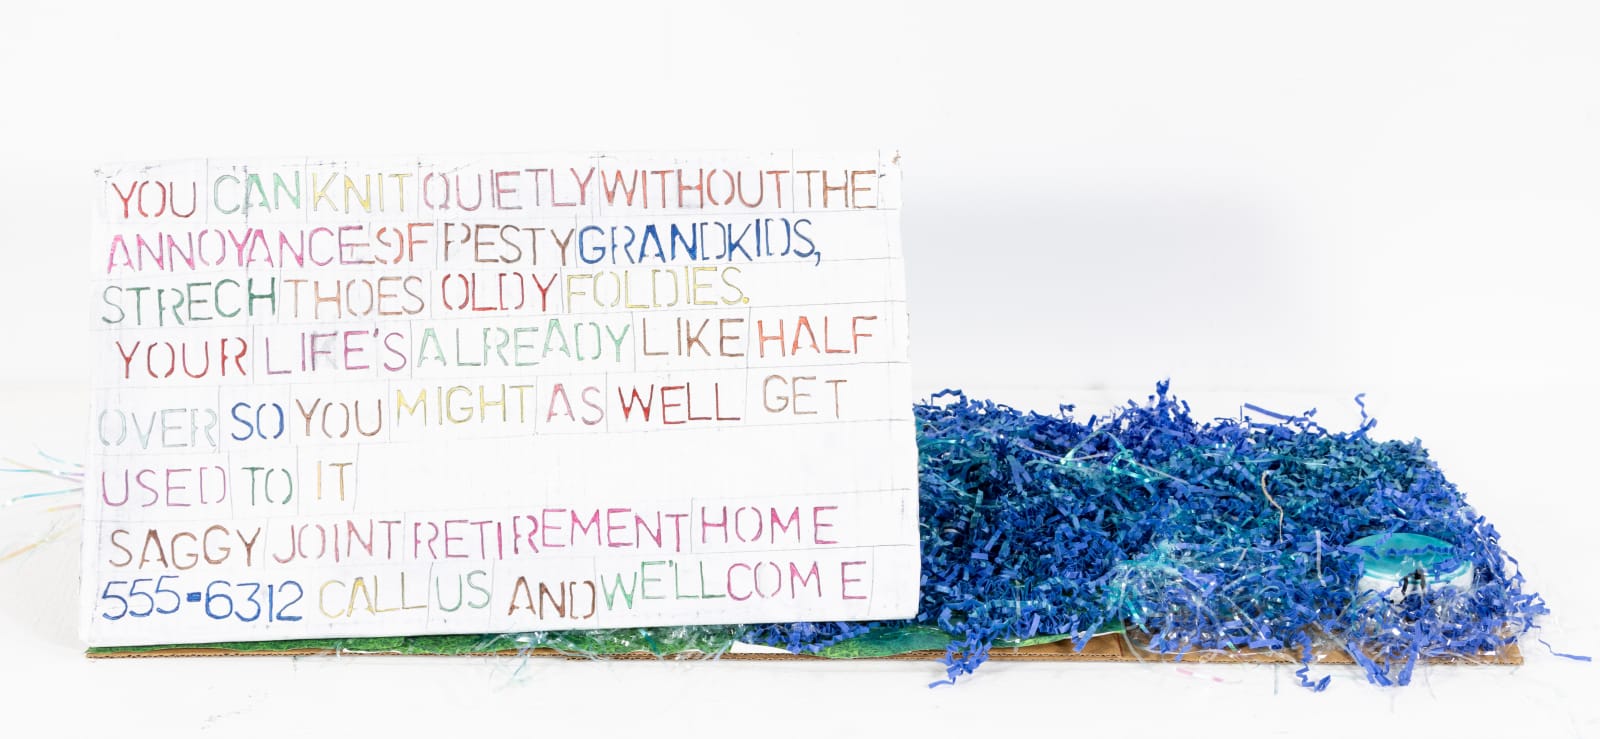 YOU CAN KNIT QUIETLY WITHOUT THE
ANNOYANCE OF PESTY GRANDKIDS,
STRECH THOES OLDY FOLDIES.
YOUR LIFE'S ALREADY LIKE HALF
OVER SO YOU MIGHT AS WELL GET
USED TO IT
SAGGY JOINT RETIREMENT HOME
555-6312 CALL US AND WE'LL COME